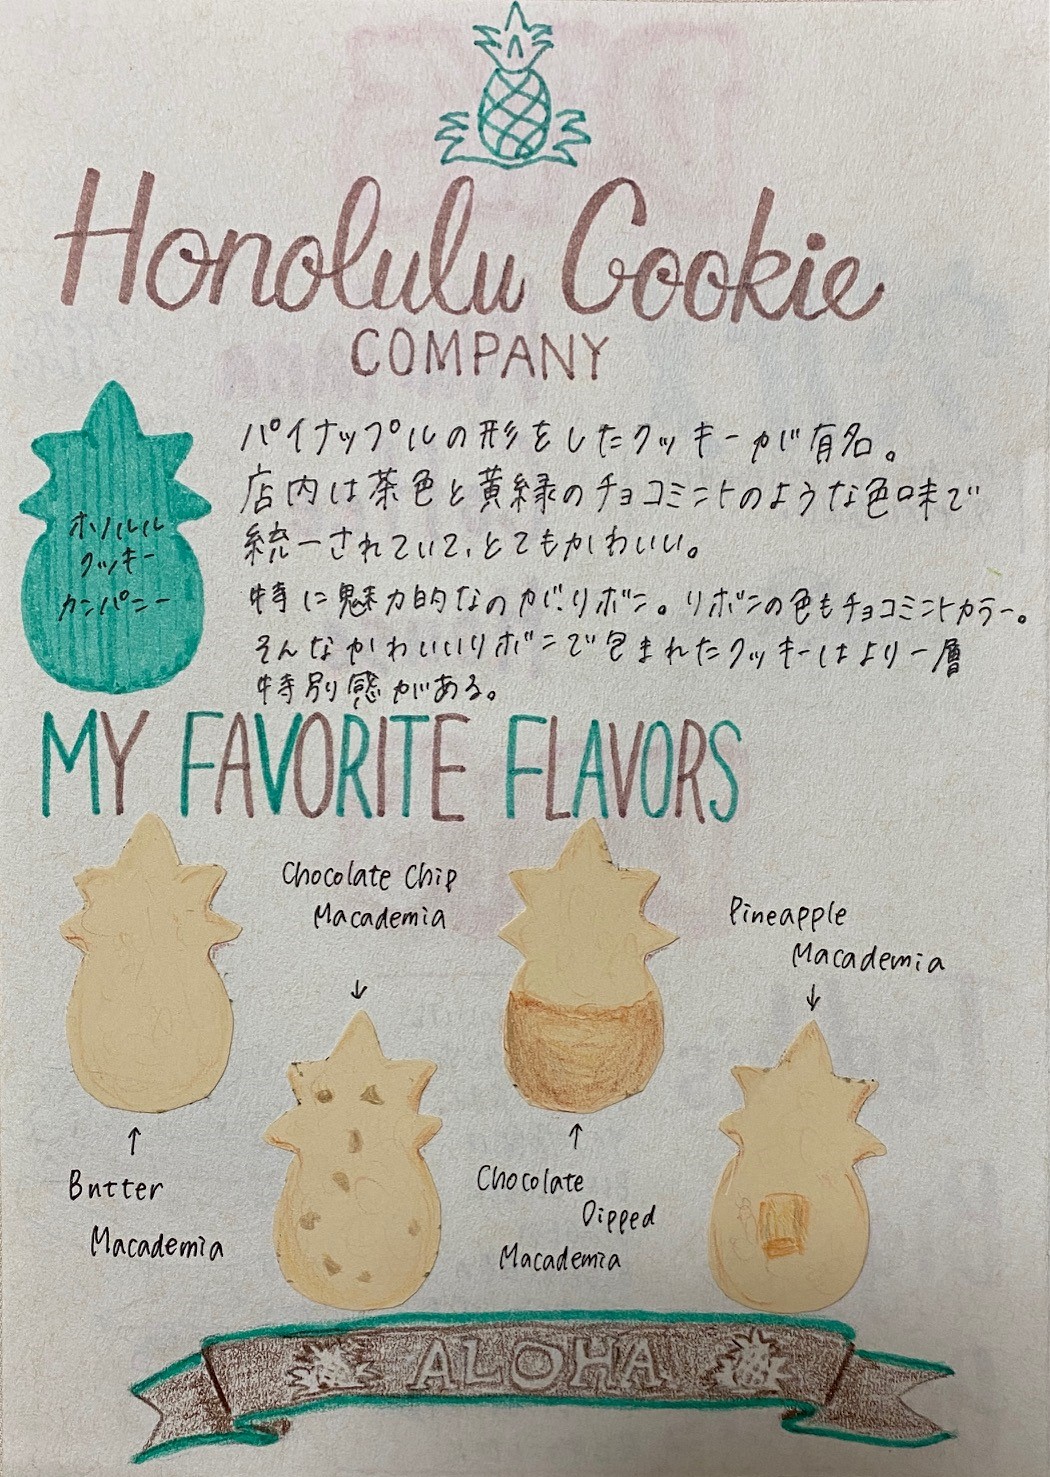 Honolulu Cookie
COMPANY
ホノルル
クッキー
カンパニー
パイナップルの形をしたクッキーが有名。
店内は茶色と黄緑のチョコミントのような色味で
統一されていて、とてもかわいい。
特に魅力的なのが、リボン。リボンの色もチョコミントカラー。
そんなかわいいリボンで包まれたクッキーはより一層
特別感がある。
MY FAVORITE FLAVORS
Chocolate Chip
Macademia
Pineapple
Macademia
Butter
Macademia
Chocolate
Dipped
Macademia
ALOHA